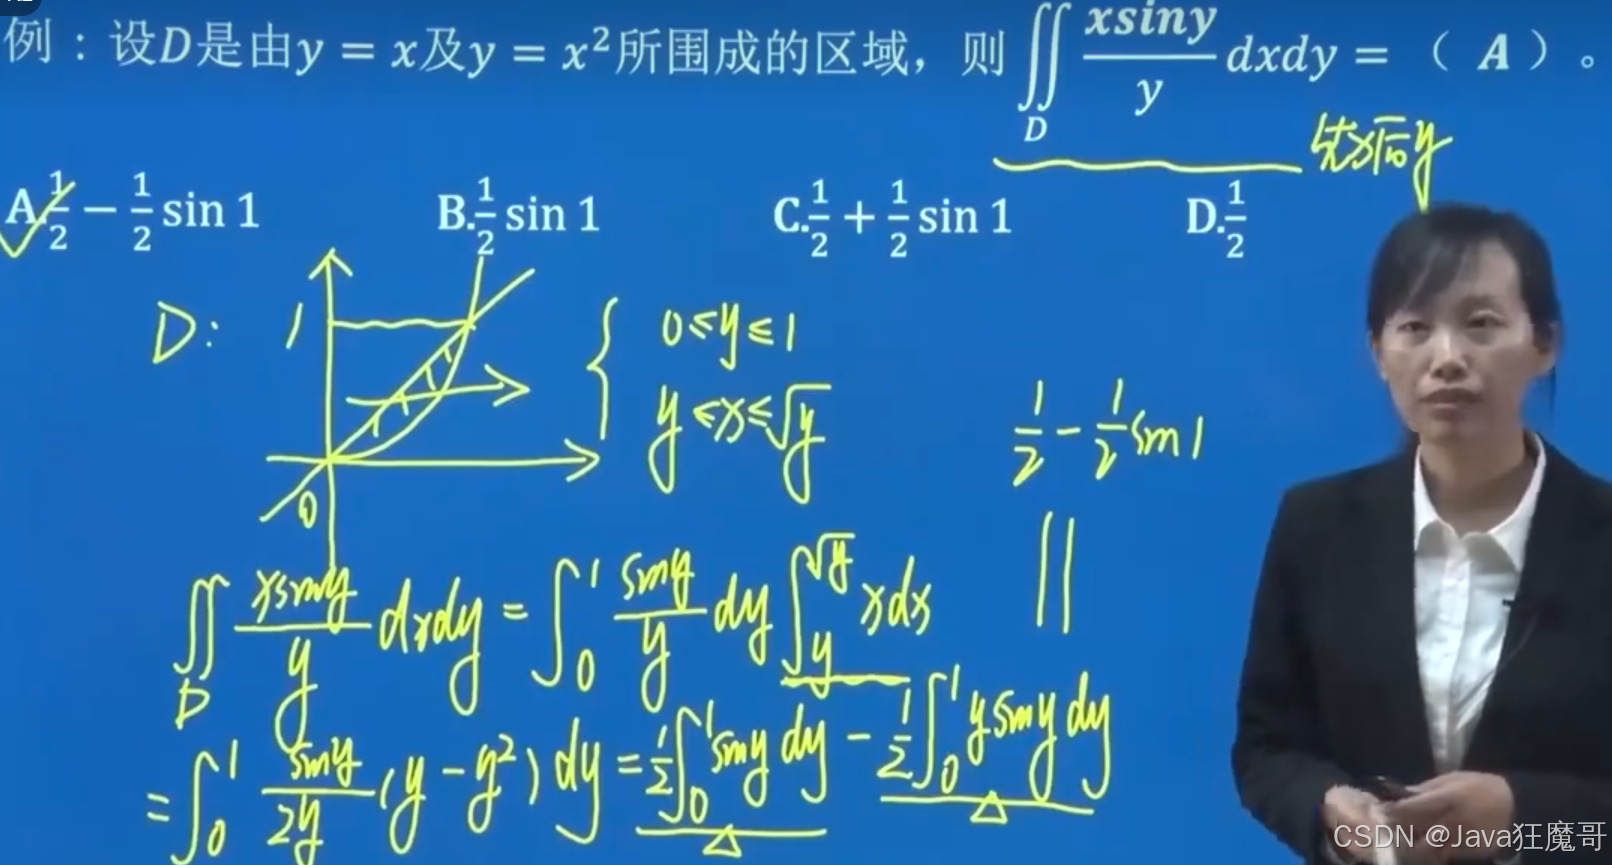 例：设D是由y = x及y = x²所围成的区域，则∬_D (xsiny)/y dxdy = （ A ）。
先x后y
A. 1/2 − 1/2 sin 1 B. 1/2 sin 1 C. 1/2 + 1/2 sin 1 D. 1/2
D: 1 0
0≤y≤1
y≤x≤√y
1/2 − 1/2 sin1
||
∬_D (xsiny)/y dxdy = ∫_0^1 (siny)/y dy ∫_y^√y xdx
= ∫_0^1 (siny)/(2y) (y − y²) dy = 1/2 ∫_0^1 siny dy − 1/2 ∫_0^1 ysiny dy
CSDN @Java狂魔哥